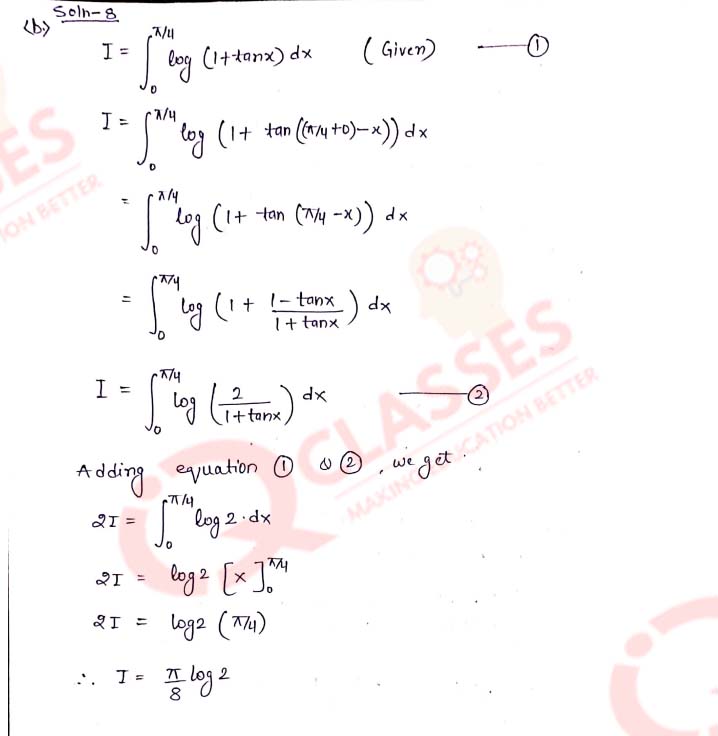 Soln-8
<b.>
I = ∫₀^π/4 log (1+tanx) dx (Given) —— ①
I = ∫₀^π/4 log (1+ tan((π/4+0)-x)) dx
= ∫₀^π/4 log (1+ tan (π/4 -x)) dx
= ∫₀^π/4 log (1 + (1-tanx)/(1+tanx)) dx
I = ∫₀^π/4 log (2/(1+tanx)) dx —— ②
Adding equation ① & ②, we get.
2I = ∫₀^π/4 log2·dx
2I = log2 [x]₀^π/4
2I = log2 (π/4)
∴ I = π/8 log2
SES
ION BETTER
IQ CLASSES
MAKING EDUCATION BETTER